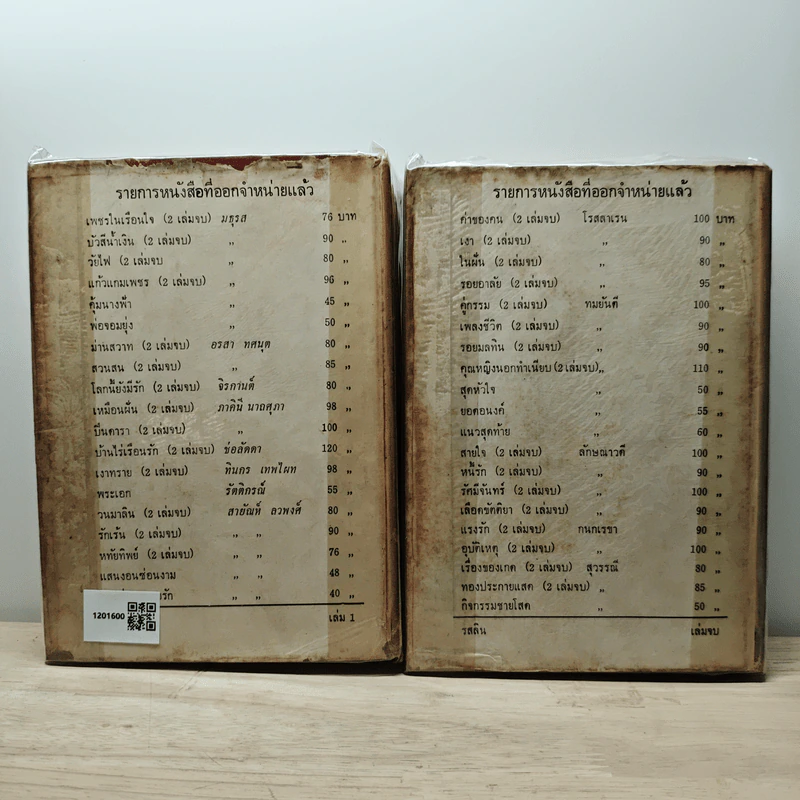 รายการหนังสือที่ออกจำหน่ายแล้ว
เพชรในเรือนใจ (2 เล่มจบ) มธุรส 76 บาท
บัวสีน้ำเงิน (2 เล่มจบ) „ 90 „
วัยไฟ (2 เล่มจบ „ 80 „
แก้วแกมเพชร (2 เล่มจบ) „ 96 „
คุ้มนางฟ้า „ 45 „
พ่อจอมยุ่ง „ 50 „
ม่านสวาท (2 เล่มจบ) อรสา ทศนุต 80 „
สวนสน (2 เล่มจบ) „ 85 „
โลกนี้ยังมีรัก (2 เล่มจบ) จิรกานต์ 80 „
เหมือนฝัน (2 เล่มจบ) ภาคินี นาถศุภา 98 „
ปิ่นดารา (2 เล่มจบ) „ 100 „
บ้านไร่เรือนรัก (2 เล่มจบ) ช่อลัดดา 120 „
เงาทราย (2 เล่มจบ) ทินกร เทพไผท 98 „
พระเอก รัตติกรณ์ 55 „
วนมาลิน (2 เล่มจบ) สายัณห์ ลวพงศ์ 80 „
รักเร้น (2 เล่มจบ) „ „ 90 „
หทัยทิพย์ (2 เล่มจบ) „ „ 76 „
แสนงอนซ่อนงาม „ „ 48 „
รัก „ „ 40 „
1201600
เล่ม 1
รายการหนังสือที่ออกจำหน่ายแล้ว
ค่าของคน (2 เล่มจบ) โรสลาเรน 100 บาท
เงา (2 เล่มจบ) „ 90 „
ในฝัน (2 เล่มจบ) „ 80 „
รอยอาลัย (2 เล่มจบ) „ 95 „
คู่กรรม (2 เล่มจบ) ทมยันตี 100 „
เพลงชีวิต (2 เล่มจบ) „ 90 „
รอยมลทิน (2 เล่มจบ) „ 90 „
คุณหญิงนอกทำเนียบ (2 เล่มจบ) „ 110 „
สุดหัวใจ „ 50 „
ยอดอนงค์ „ 55 „
แนวสุดท้าย „ 60 „
สายใจ (2 เล่มจบ) ลักษณาวดี 100 „
หนี้รัก (2 เล่มจบ) „ 90 „
รัศมีจันทร์ (2 เล่มจบ) „ 100 „
เลือดขัตติยา (2 เล่มจบ) „ 90 „
แรงรัก (2 เล่มจบ) กนกเรขา 90 „
อุบัติเหตุ (2 เล่มจบ) „ 100 „
เรื่องของเกด (2 เล่มจบ) สุวรรณี 80 „
ทองประกายแสด (2 เล่มจบ) „ 85 „
กิจกรรมชายโสด „ 50 „
รสลิน เล่มจบ